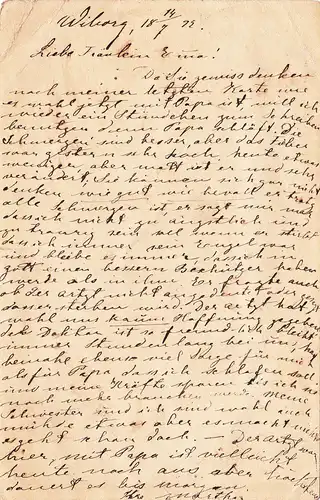 Wiborg, 18 14/7 93.
Liebe Fräulein Ema!
Da Sie gewiss denken
nach meiner letzten Karte wie
es wohl jetzt mit Papa ist, will ich
wieder ein Stündchen zum Schreiben
benützen denn Papa schläft. Die
Schmerzen sind besser, aber das Fieber
war gestern sehr hoch, heute etwas
weniger aber matt ist er und sehr
verändert. Sie können sich gar nicht
denken wie gut wie er trägt
alle Schmerzen ist, er sagt mir nur
dass ich nicht zu ängstlich und
zu traurig sein soll wenn er stirbt
dass ich immer sein Engel war
und bleibe es immer, dass ich in
Gott einen bessern Beschützer haben
werde als in ihm. Er auch
ob der Arzt nicht angedeutet
dass er sterben wird. Der Arzt hat
wohl uns kaum Hoffnung
ist so freundlich bleibt
immer Stundenlang bei uns, hat
beinah ebenso viel Sorge für mich
als für Papa dass ich schlafen soll
und meine Kräfte sparen bis ich sie
noch mehr brauchen werde. Meine
Schwester und ich sind wohl auch
müde etwas aber es macht nichts
es geht schon doch. — Der Arzt war
hier, mit Papa ist vielleicht
heute noch aus, aber
dauert es bis morgen.
Ihre